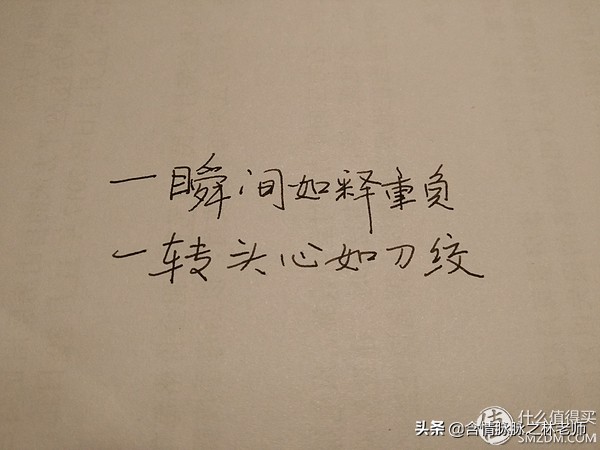 一瞬间如释重负
一转头心如刀绞
值 什么值得买
SMZDM.COM
头条 @含情脉脉之林老师